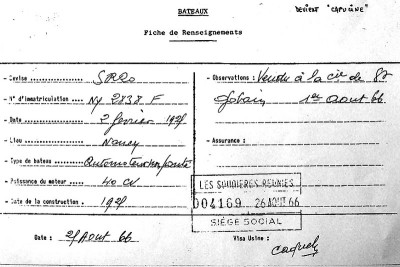 BATEAUX
DEVIENT "CAPUCINE"
Fiche de Renseignements
- Devise ............... SPRO
- Observations : Vendu à la Cie de St
Gobain 1er Aout 66.
- N° d'immatriculation : NY 2838 F
- Date ............ 2 février 1928
- Lieu ............ Nancy
- Assurance :
- Type de bateau : Automoteur
- Puissance du moteur : 40 CV
- Date de la construction . 1928
LES SOUDIERES REUNIES
004169 26 AOUT 66
SIÈGE SOCIAL
Date : 25 Aout 66
Visa Usine :